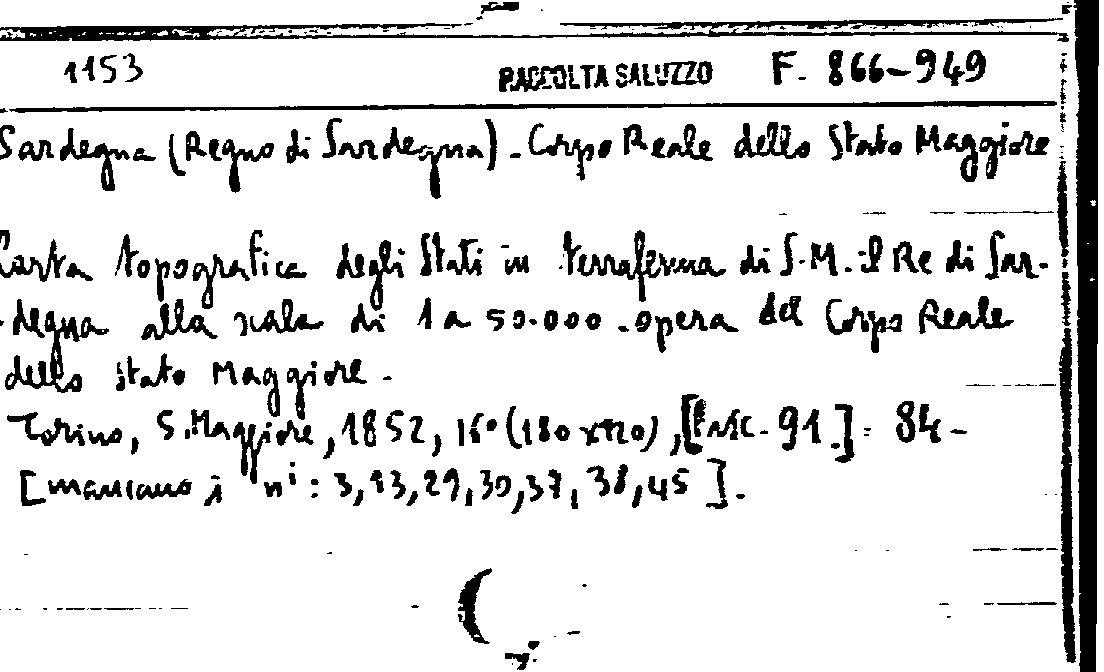 1153 RACCOLTA SALUZZO F. 866-949
Sardegna (Regno di Sardegna) - Corpo Reale dello Stato Maggiore
Carta topografica degli Stati in terraferma di S.M. il Re di Sar-
degna alla scala di 1 a 50.000 - opera del Corpo Reale
dello Stato Maggiore -
Torino, S. Maggiore, 1852, 16° (180 x 120), [ 91.] = 84 -
[mancano i ni: 3, 13, 29, 30, 37, 38, 45].